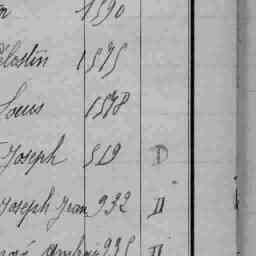 1590
élestin 1575
Louis 1578
Joseph 519 D
Joseph Jean 932 II
935 II